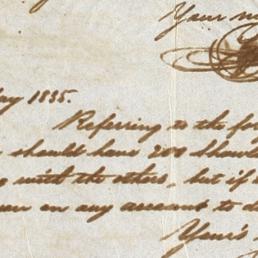 Your
ay 1835.
Referring to the fo
should have 200 should
with the others, but if
on any account to d
Your's